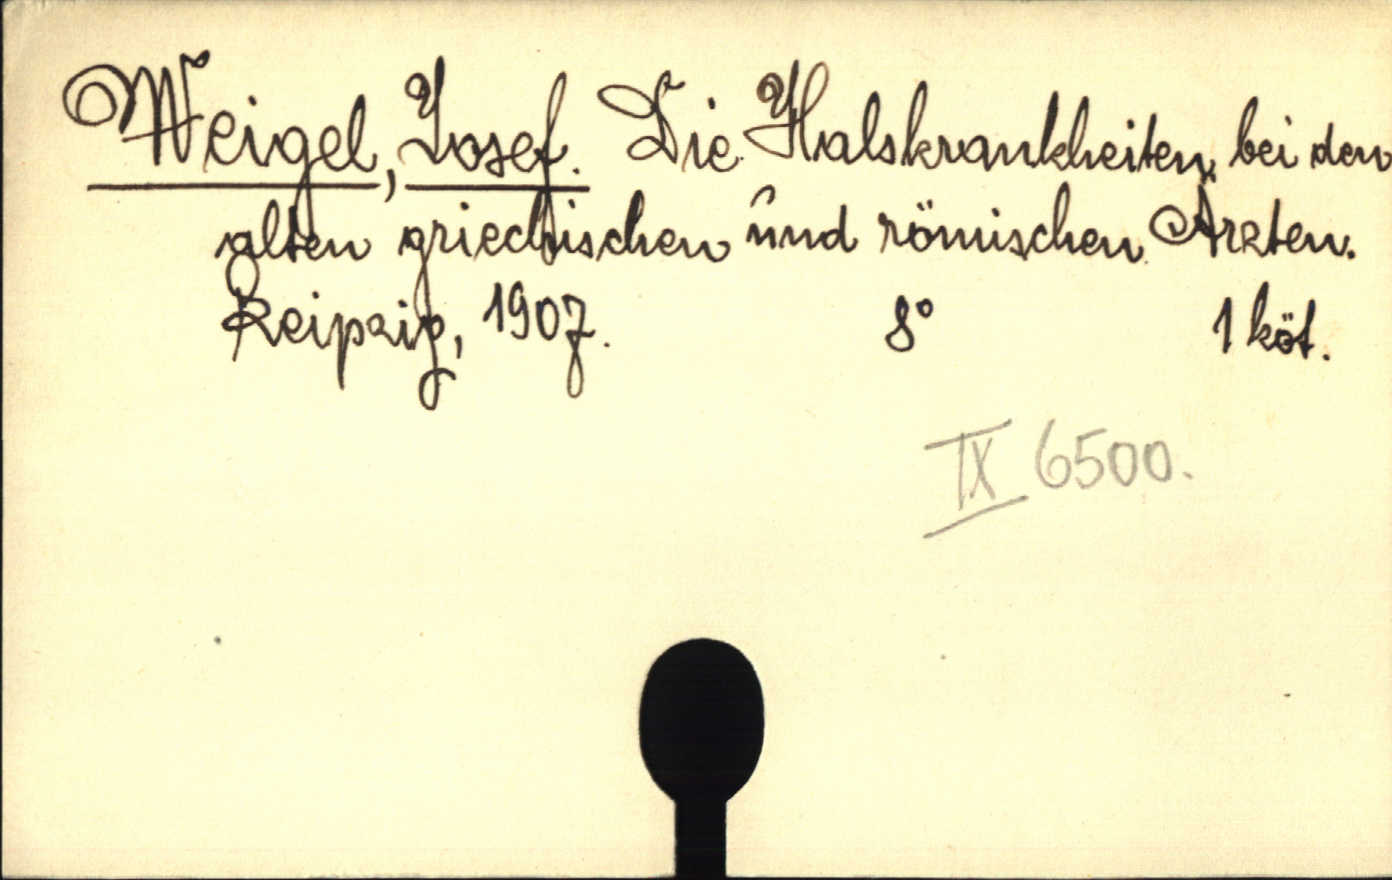 Weigel, Josef. Die Halskrankheiten bei den
alten griechischen und römischen Ärzten.
Leipzig, 1907. 8° 1 köt.
IX 6500.